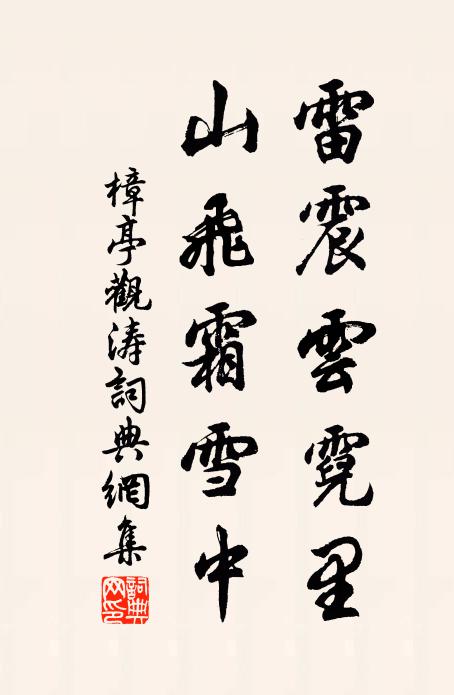 雷震雲霓里
山飛霜雪中
樟亭觀涛詞典網集
詞典
网印